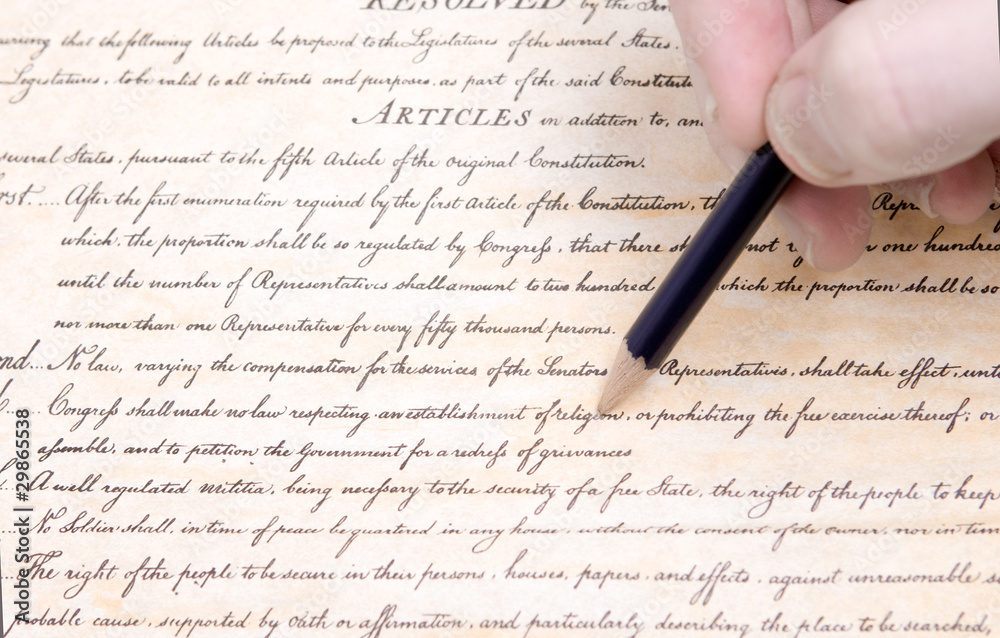 RESOLVED by the Sen
curring that the following Articles be proposed to the Legislatures of the several States.
Legislatures, to be valid to all intents and purposes, as part of the said Constitut
ARTICLES in addition to, an
several States, pursuant to the fifth Article of the original Constitution.
rst. .... After the first enumeration required by the first Article of the Constitution, th Repre
which, the proportion shall be so regulated by Congress, that there sh not one hundred
until the number of Representatives shall amount to two hundred which the proportion shall be so
nor more than one Representative for every fifty thousand persons.
ond... No law, varying the compensation for the services of the Senators Representatives, shall take effect, unti
Congress shall make no law respecting an establishment of religion, or prohibiting the free exercise thereof; or
assemble, and to petition the Government for a redress of grievances
A well regulated militia, being necessary to the security of a free State, the right of the people to keep
No Soldier shall, in time of peace be quartered in any house, without the consent of the owner, nor in tim
The right of the people to be secure in their persons, houses, papers, and effects, against unreasonable s
robable cause, supported by Oath or affirmation, and particularly describing the place to be searched,
Adobe Stock | #29865538